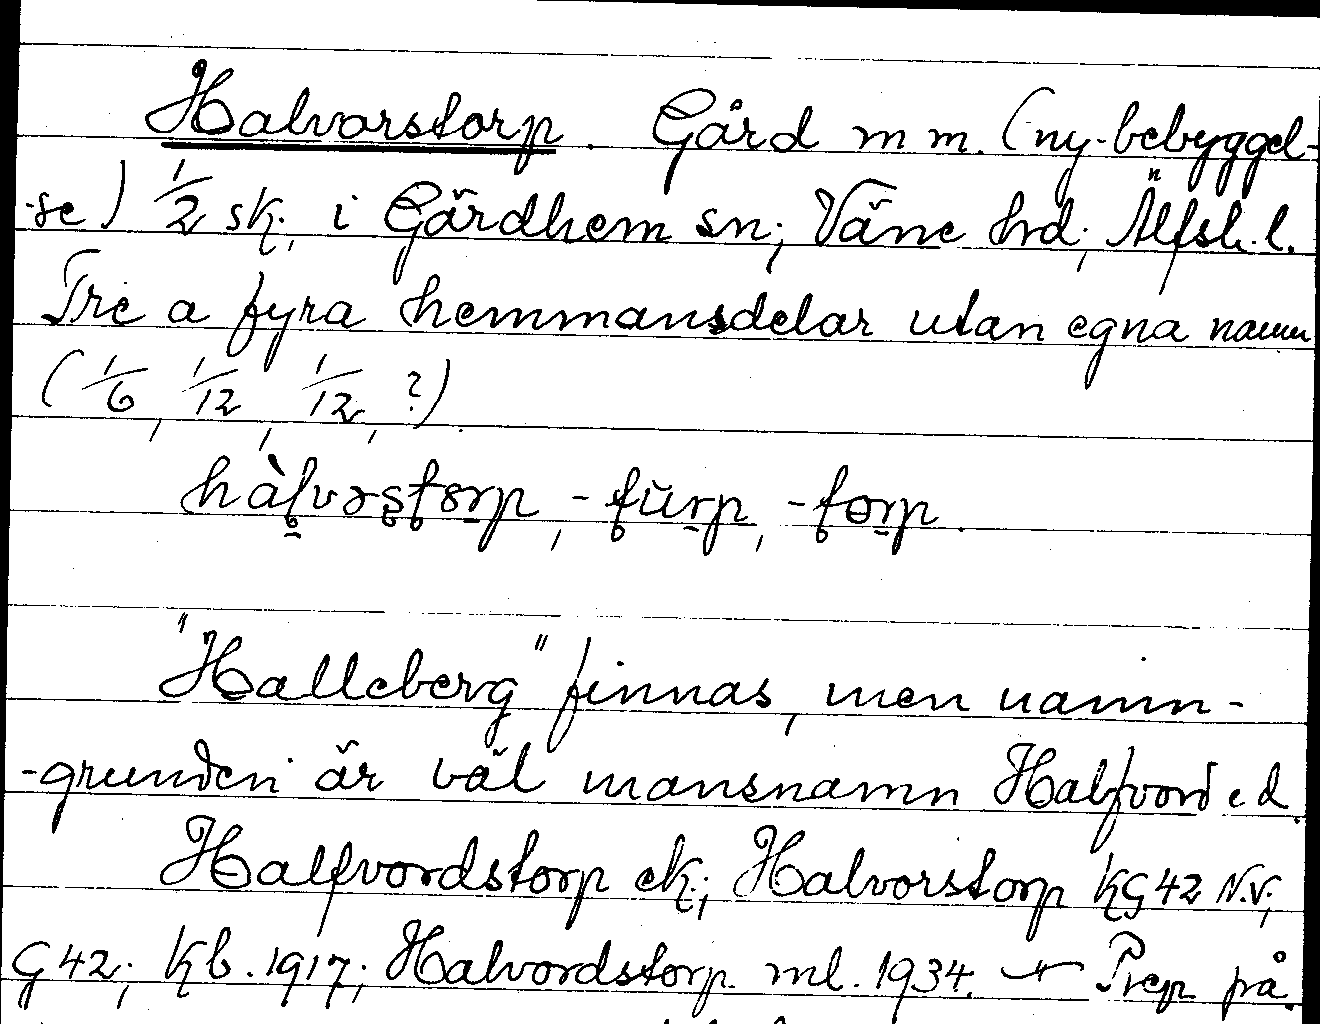 Halvorstorp. Gård m m. (ny-bebyggel-
-se) 1/2 sk, i Gärdhem sn; Väne hrd; Älfsb. l.
Tre a fyra hemmansdelar utan egna namn
(1/6, 1/12, 1/12, ?)
hàlvəstorp, -tŭrp, -torp.
"Halleberg" finnas, men namn-
-grunden är väl mansnamn Halfvord e d.
Halfvordstorp ek; Halvorstorp KG42 N.V;
G42; Kb. 1917; Halvordstorp ml. 1934. Prep på